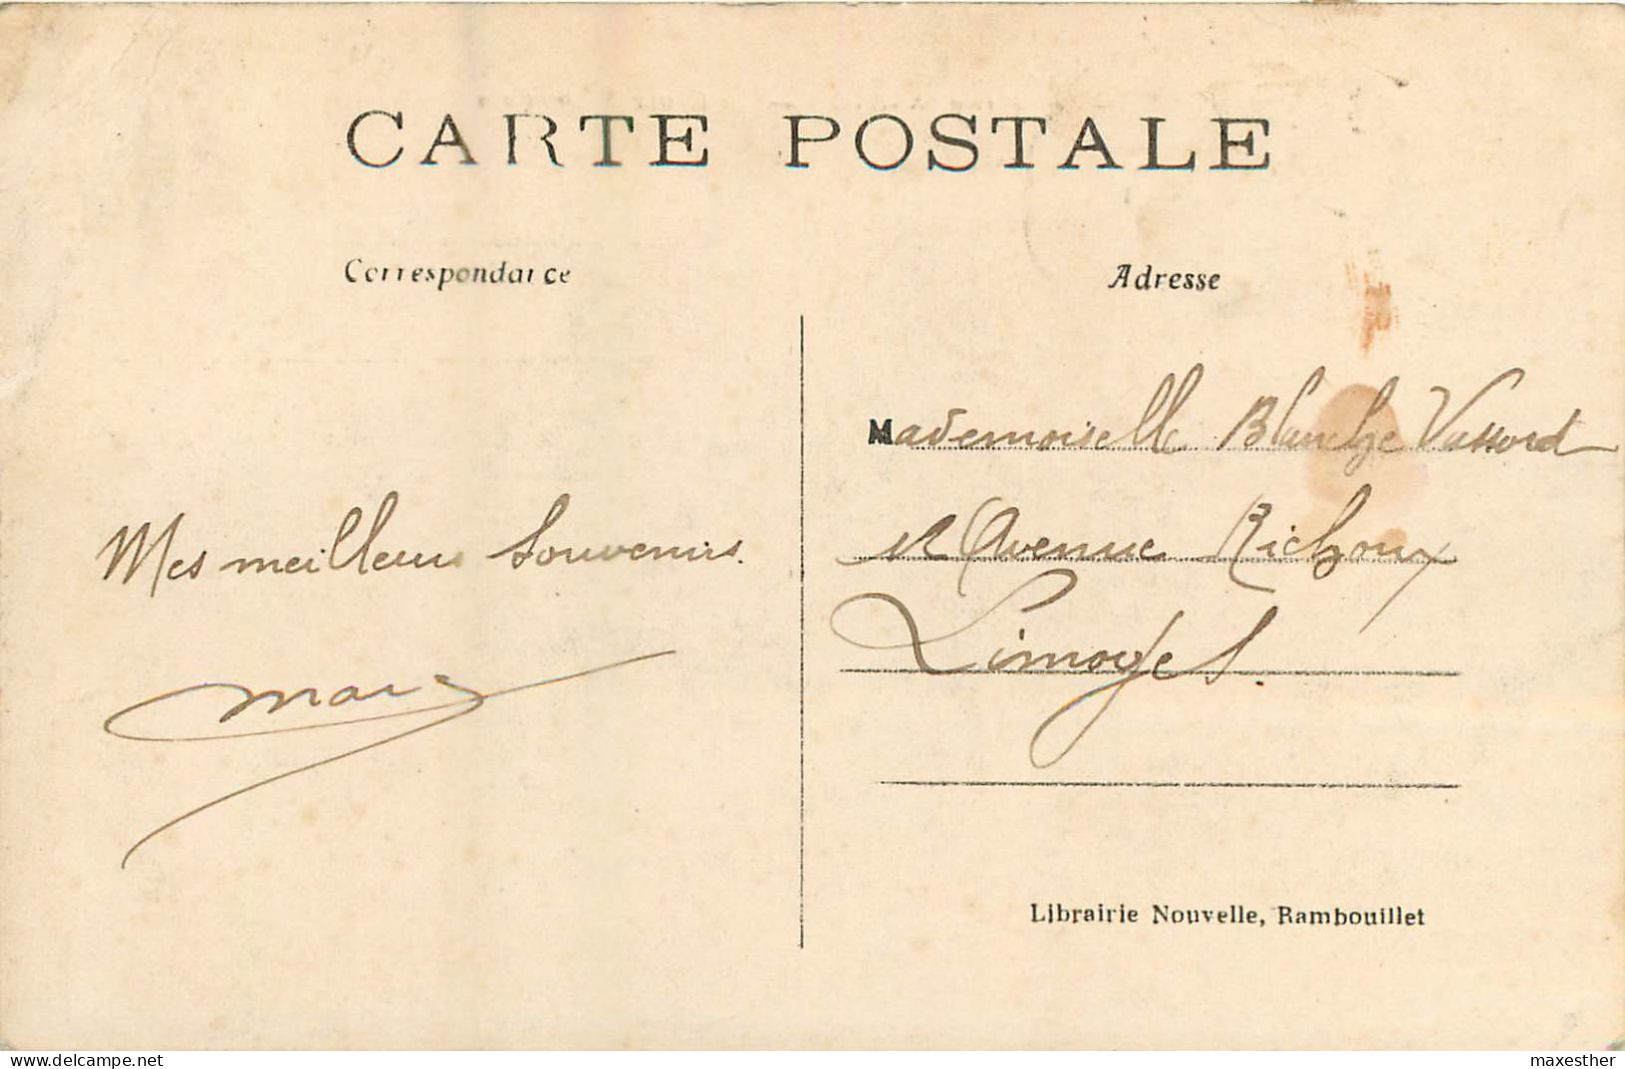 CARTE POSTALE
Correspondance
Adresse
Mademoiselle Blanche Vassord
12 Avenue Richoux
Limoges.
Mes meilleurs Souvenirs.
Marc
Librairie Nouvelle, Rambouillet
www.delcampe.net
maxesther